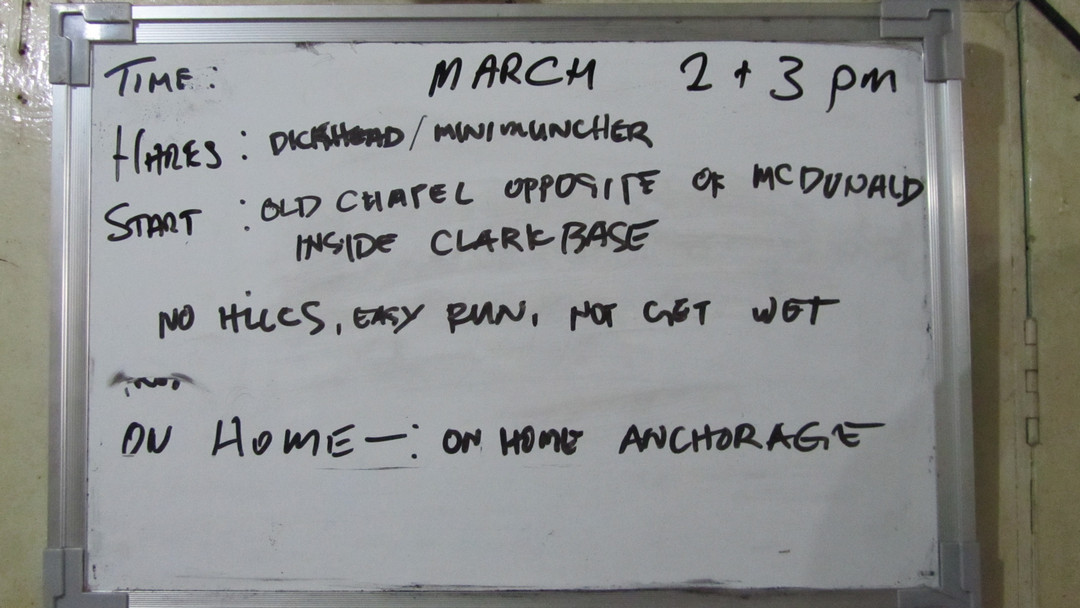 TIME: MARCH 2 + 3 pm
HARES: DICKHEAD/MINIMUNCHER
START: OLD CHAPEL OPPOSITE OF MCDONALD
INSIDE CLARK BASE
NO HILLS, EASY RUN, NOT GET WET
ON HOME—: ON HOME ANCHORAGE